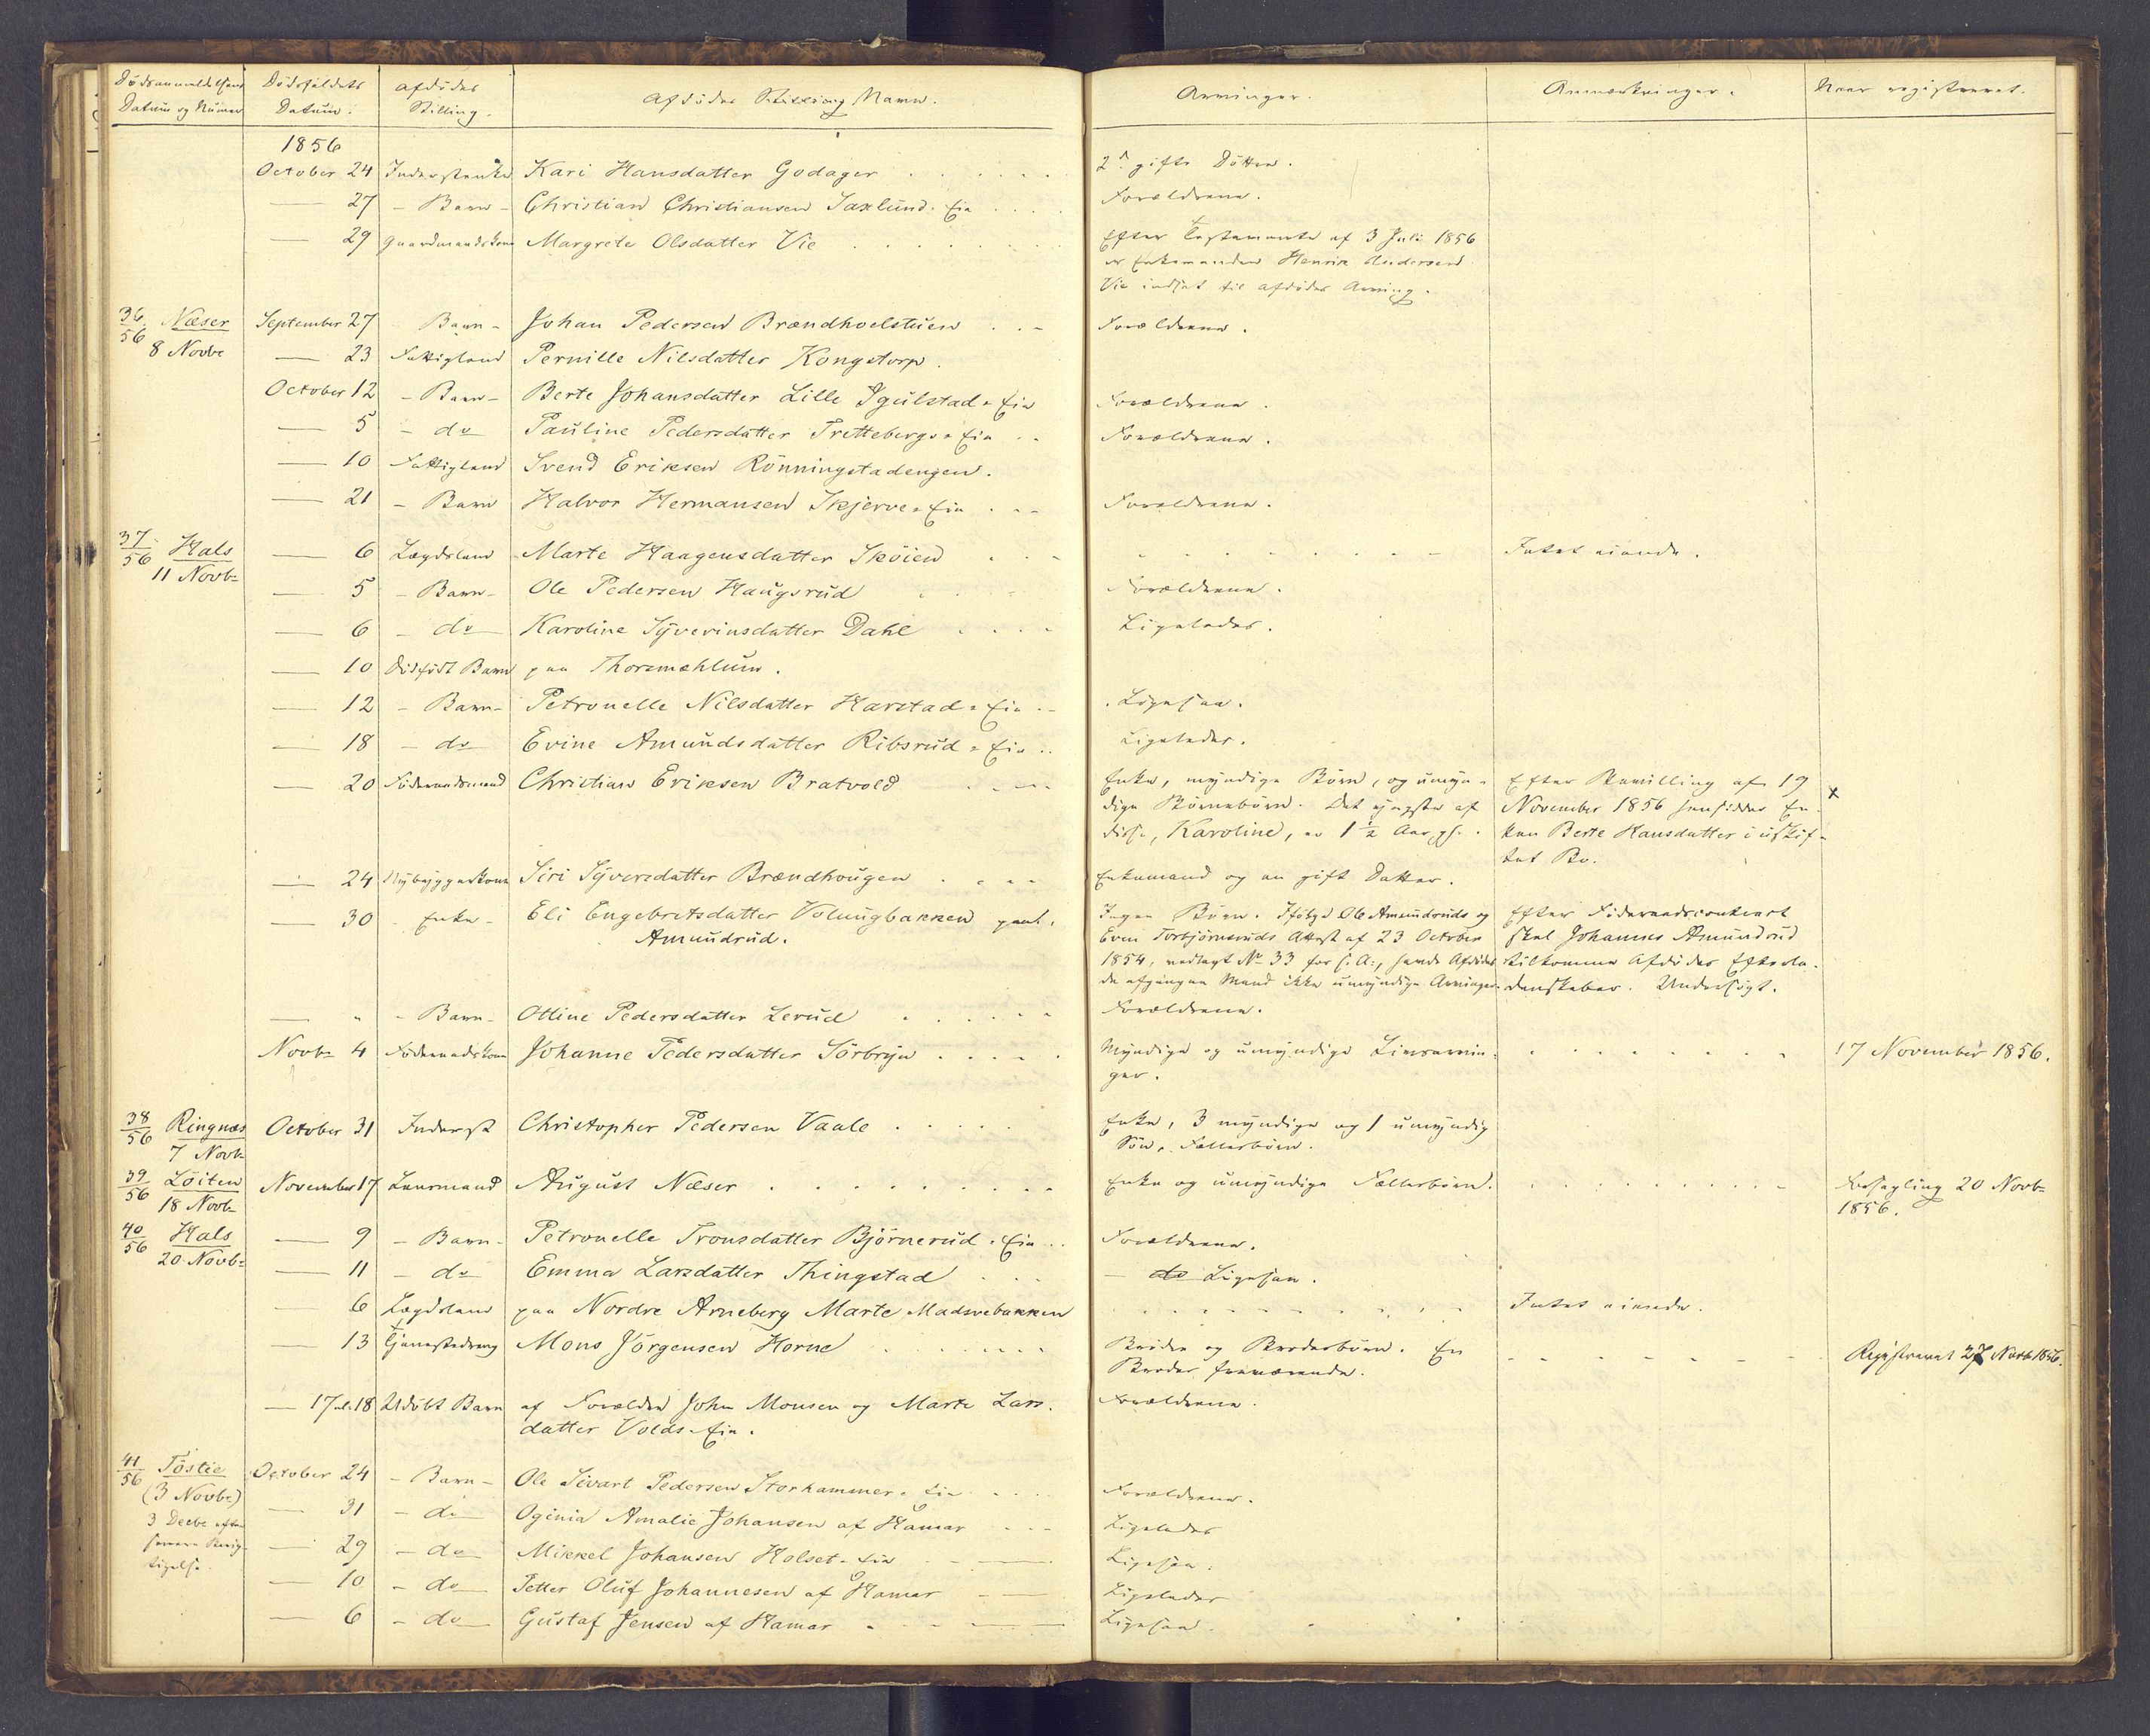 Dødsanmeldelsens Datum og Numer | Dødsfaldets Datum. | Afdødes Stilling. | Afdødes Navn. | Arvinger. | Anmærkninger. | Naar registreret.
1856
October 24 | Inderstenke | Kari Hansdatter Godager | 2de gifte Døttre.
— 27 | Barn | Christian Christiansen Saxlund-Eie | Forældrene.
— 29 | Gaardmandskone | Margrete Olsdatter Vie | Efter Testamente af 3 Juli 1856
er Enkemanden Henrik Andersen
Vie indsat til Afdødes Arving.
36/56 Næser | September 27 | Barn | Johan Pedersen Brændhoelstuen | Forældrene.
8 Novbr | — 23 | Fattiglem | Pernille Nilsdatter Kongstorp.
October 12 | Barn | Berte Johansdatter Lille Igulstad-Eie | Forældrene.
— 5 | do | Pauline Pedersdatter Trettebergs-Eie | Forældrene.
— 10 | Fattiglem | Svend Eriksen Rönningstadengen.
— 21 | Barn | Halvor Hermansen Skjerve-Eie | Forældrene.
37/56 Hals | — 6 | Lægdslem | Marte Haagensdatter Sköien | Intet eiende.
11 Novbr | — 5 | Barn | Ole Pedersen Haugsrud | Forældrene.
— 6 | do | Karoline Syverinsdatter Dahl | Ligeledes.
— 10 | Dødfødt Barn | paa Thorsmæhlum.
— 12 | Barn | Petronelle Nilsdatter Harstad-Eie | Ligesaa.
— 18 | do | Evine Amundsdatter Ribsrud-Eie | Ligeledes.
— 20 | Föderaadsmand | Christian Eriksen Bratvold | Enke, myndige Börn, og umyn- | Efter Bevilling af 19 x
dige Börnebörn. Det yngste af | November 1856 hensidder En-
disse, Karoline, er 1 1/2 Aar gl. | ken Berte Hansdatter i uskif-
tet Bo.
— 24 | Nybyggerkone | Siri Syversdatter Brændhougen | Enkemand og en gift Datter.
— 30 | Enke | Eli Engebretsdatter Volungbakken | Ingen Börn. Ifölge Ole Amundruds og | Efter Föderaadscontract
Amundrud. | Even Torbjörnsruds Attest af 23 October | skal Johannes Amundrud
1854, vedlagt No 33 for s. A., havde Afdødes | tilkomme Afdødes Efterla-
da afgangne Mand ikke umyndige Arvinger. | denskaber. Undersøgt.
— " | Barn | Otline Pedersdatter Lerud | Forældrene.
Novbr 4 | Föderaadskone | Johanne Pedersdatter Sörbryn | Myndige og umyndige Livsarvin- | 17 November 1856.
ger.
38/56 Ringnæs | October 31 | Inderst | Christopher Pedersen Vaale | Enke, 3 myndige og 1 umyndig
7 Novbr | Sön, Fællesbörn.
39/56 Löiten | November 17 | Leensmand | August Næser | Enke og umyndige Fællesbörn. | Forsegling 20 Novbr
18 Novbr | 1856.
40/56 Hals | — 9 | Barn | Petronelle Tronsdatter Björnerud-Eie | Forældrene.
20 Novbr | — 11 | do | Emma Larsdatter Thingstad | do Ligesaa.
— 6 | Lægdslem | paa Nordre Arneberg Marte Madsvebakken | Intet eiende.
— 13 | Tjenestedreng | Mons Jörgensen Horne | Brödre og Broderbörn. En | Registreret 27 Novbr 1856.
Broder fraværende.
— 17 el. 18 | Udöbt Barn | af Forældre John Monsen og Marte Lars-
datter Volds-Eie. | Forældrene.
41/56 Töstie | October 24 | Barn | Ole Sivart Pedersen Storhammer-Eie | Forældrene.
(3 Novbr) | — 31 | do | Oginia Amalie Johansen af Hamar | Ligeledes
3 Decbr efter | — 29 | do | Mikkel Johansen Holset-Eie | Ligesaa.
— 10 | do | Petter Oluf Johannesen af Hamar | Ligeledes
— 6 | do | Gustaf Jensen af Hamar | Ligesaa.